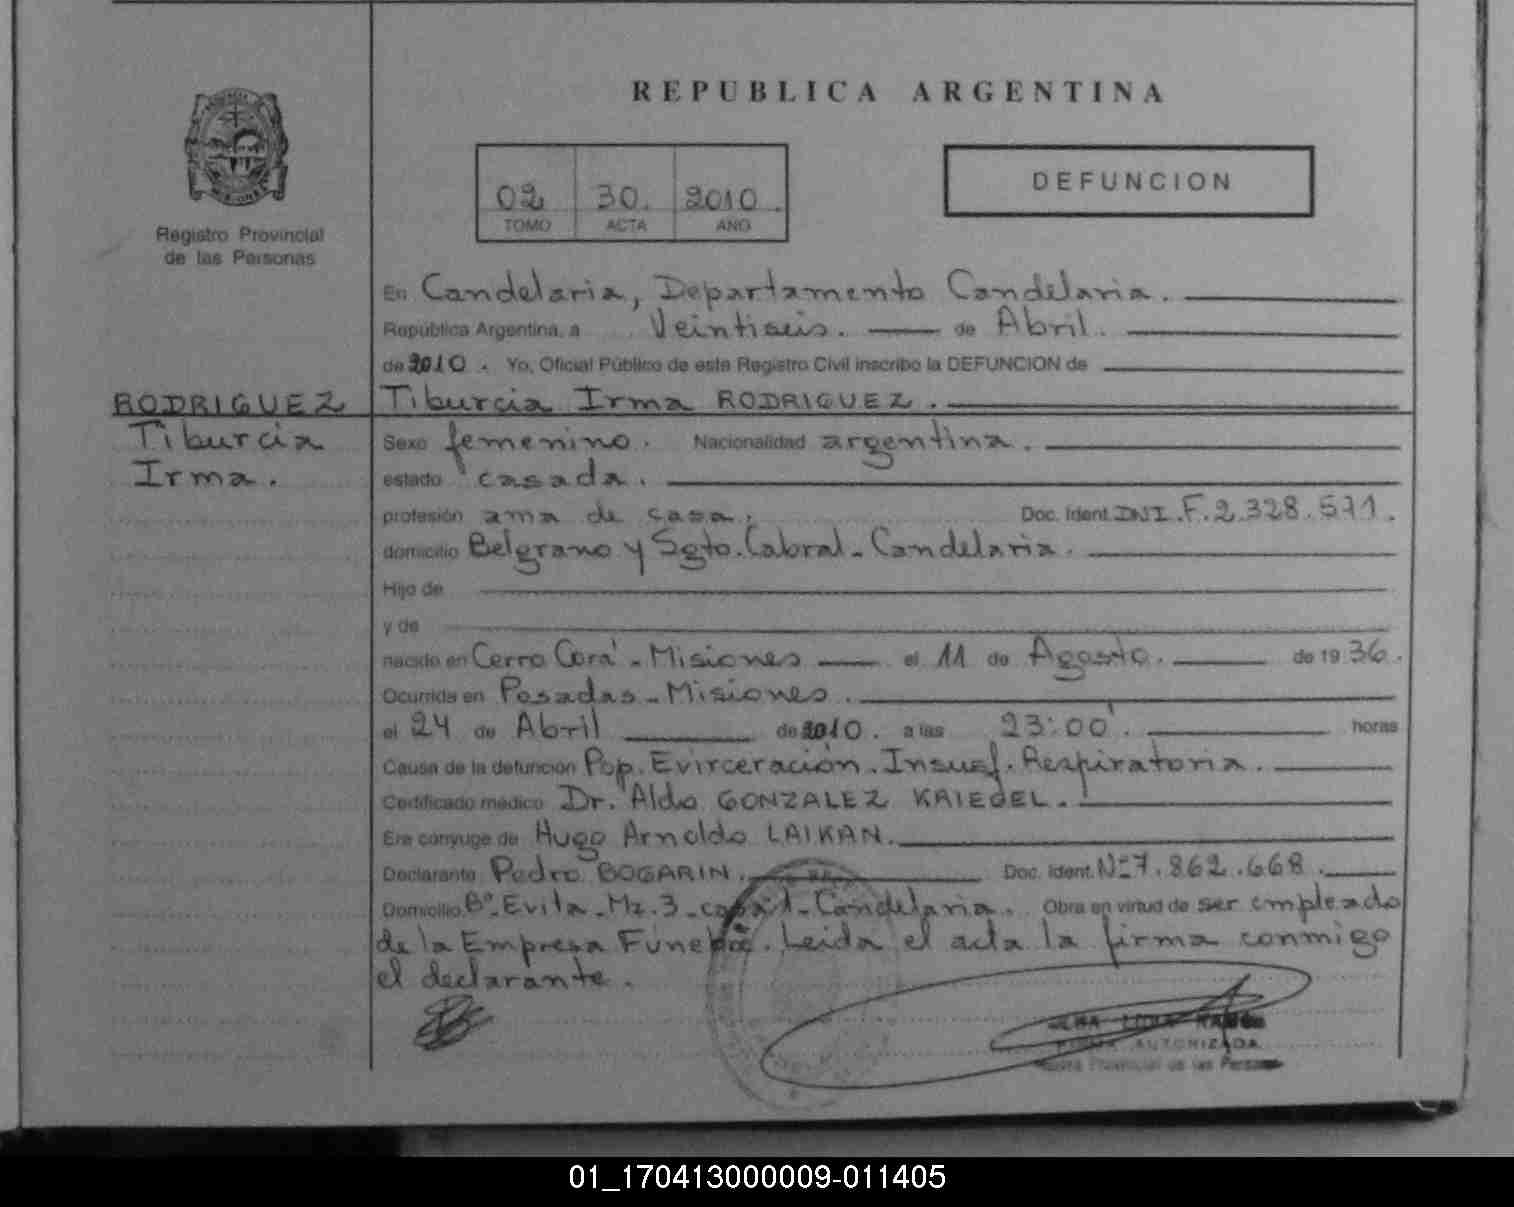 REPUBLICA ARGENTINA
02 30. 2010.
TOMO ACTA AÑO
DEFUNCION
Registro Provincial
de las Personas
En Candelaria, Departamento Candelaria.
República Argentina, a Veintiseis. de Abril.
de 2010. Yo, Oficial Público de este Registro Civil inscribo la DEFUNCION de
RODRIGUEZ
Tiburcia
Irma.
Tiburcia Irma RODRIGUEZ.
Sexo femenino. Nacionalidad argentina.
estado casada.
profesión ama de casa. Doc. Ident. DNI. F. 2.328.571.
domicilio Belgrano y Sgto. Cabral - Candelaria.
Hijo de
y de
nacido en Cerro Corá - Misiones el 11 de Agosto. de 19 36.
Ocurrida en Posadas - Misiones.
el 24 de Abril de 2010. a las 23:00'. horas
Causa de la defunción Pop. Evirceración. Insuf. Respiratoria.
Certificado médico Dr. Aldo GONZALEZ KRIEGEL.
Era cónyuge de Hugo Arnoldo LAIKAN.
Declarante Pedro BOGARIN. Doc. Ident. Nº 7.862.668.
Domicilio Bº. Evita - Mz. 3 - casa 1 - Candelaria. Obra en virtud de ser empleado
de la Empresa Funebre. Leida el acta la firma conmigo
el declarante.
FIRMA AUTORIZADA
Provincial de las Personas
01_170413000009-011405